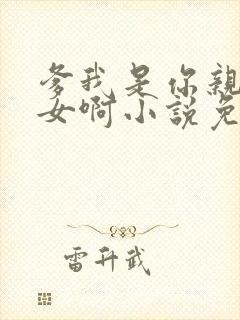 爹我是你亲
女啊小说免
雷升武